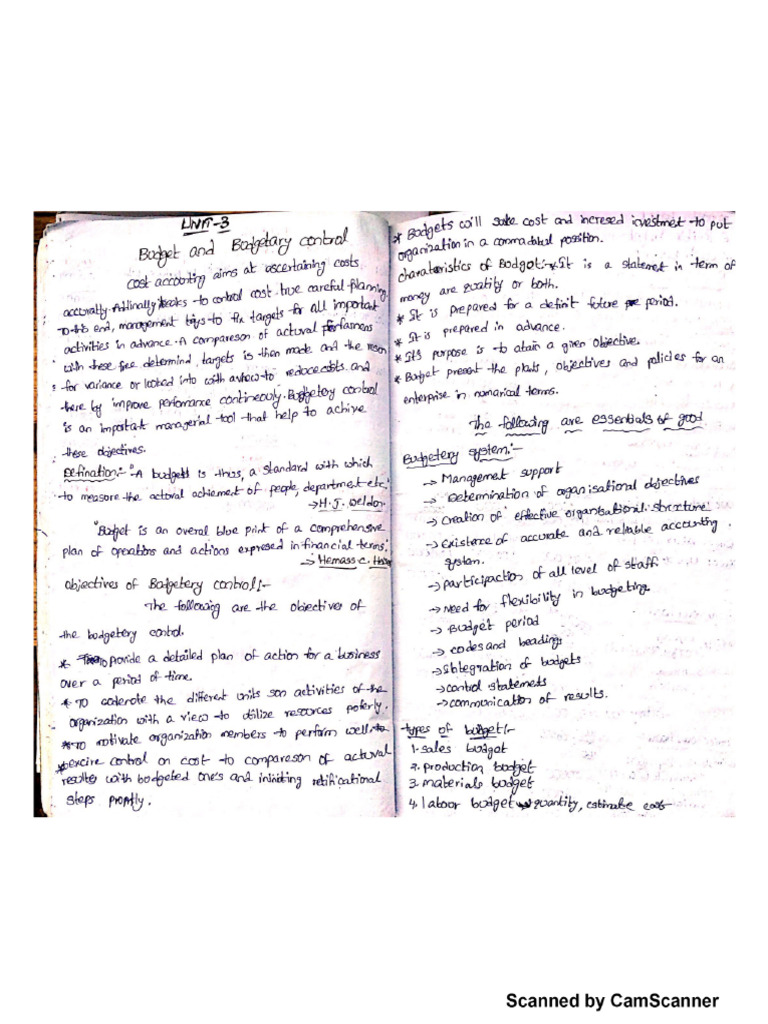 UNIT-3
Budget and Budgetary control
cost accouting aims at ascertaining costs
accuratly. Aditinally it seaks to control cost. true careful planning
To this end, management trys to fix targets for all important
activities in advance. A compareson of actural perfamens
with these free determind, targets is then made and the reson
for variance or looked into with a view to reduce costs. and
there by improve perfomance contineouly. Budgetery control
is an important managerial tool that help to achive
these objectives.
Defination:- "A budgets is thus, a standard with which
to measure the actoral achiement of people, department etc."
→ H.J. Weldon
"Budget is an overal blue print of a comprehensive
plan of operations and actions expresed in financial terms."
→ Hemass C.
objectives of Badgetery control:-
The following are the objectives of
the budgetery control.
* To provide a detailed plan of action for a business
over a period of time.
* To coderote the different units son activities of the
organization with a view to utilize resources poterly.
* To motivate organization members to perform well to
* excire control on cost to compareson of actural
results with bodgeted one's and initiating retificational
steps promtly.
* Budgets will sake cost and incresed investmet to put
organization in a commadabul position.
charateristics of Budgot:- * It is a statemet in term of
money are quatity or both.
* It is prepared for a definit future period.
* It is prepared in advance.
* It's purpose is to atain a given objective.
* Budget present the plans, objectives and policies for an
enterprise in numarical terms.
The following are essentials of good
Budgetery system:-
→ Management support
→ Determination of organisational objectives
→ creation of effective organisational structure
→ Existace of accurate and reliable accounting
system.
→ participaction of all level of staff
→ need for flexibility in budgeting.
→ Budget period
→ codes and headings
→ Integration of budgets
→ control statements
→ communication of results.
types of budget:-
1. sales budgat
2. production budget
3. materials budget
4. labour budget → quantity, estimate cost
Scanned by CamScanner